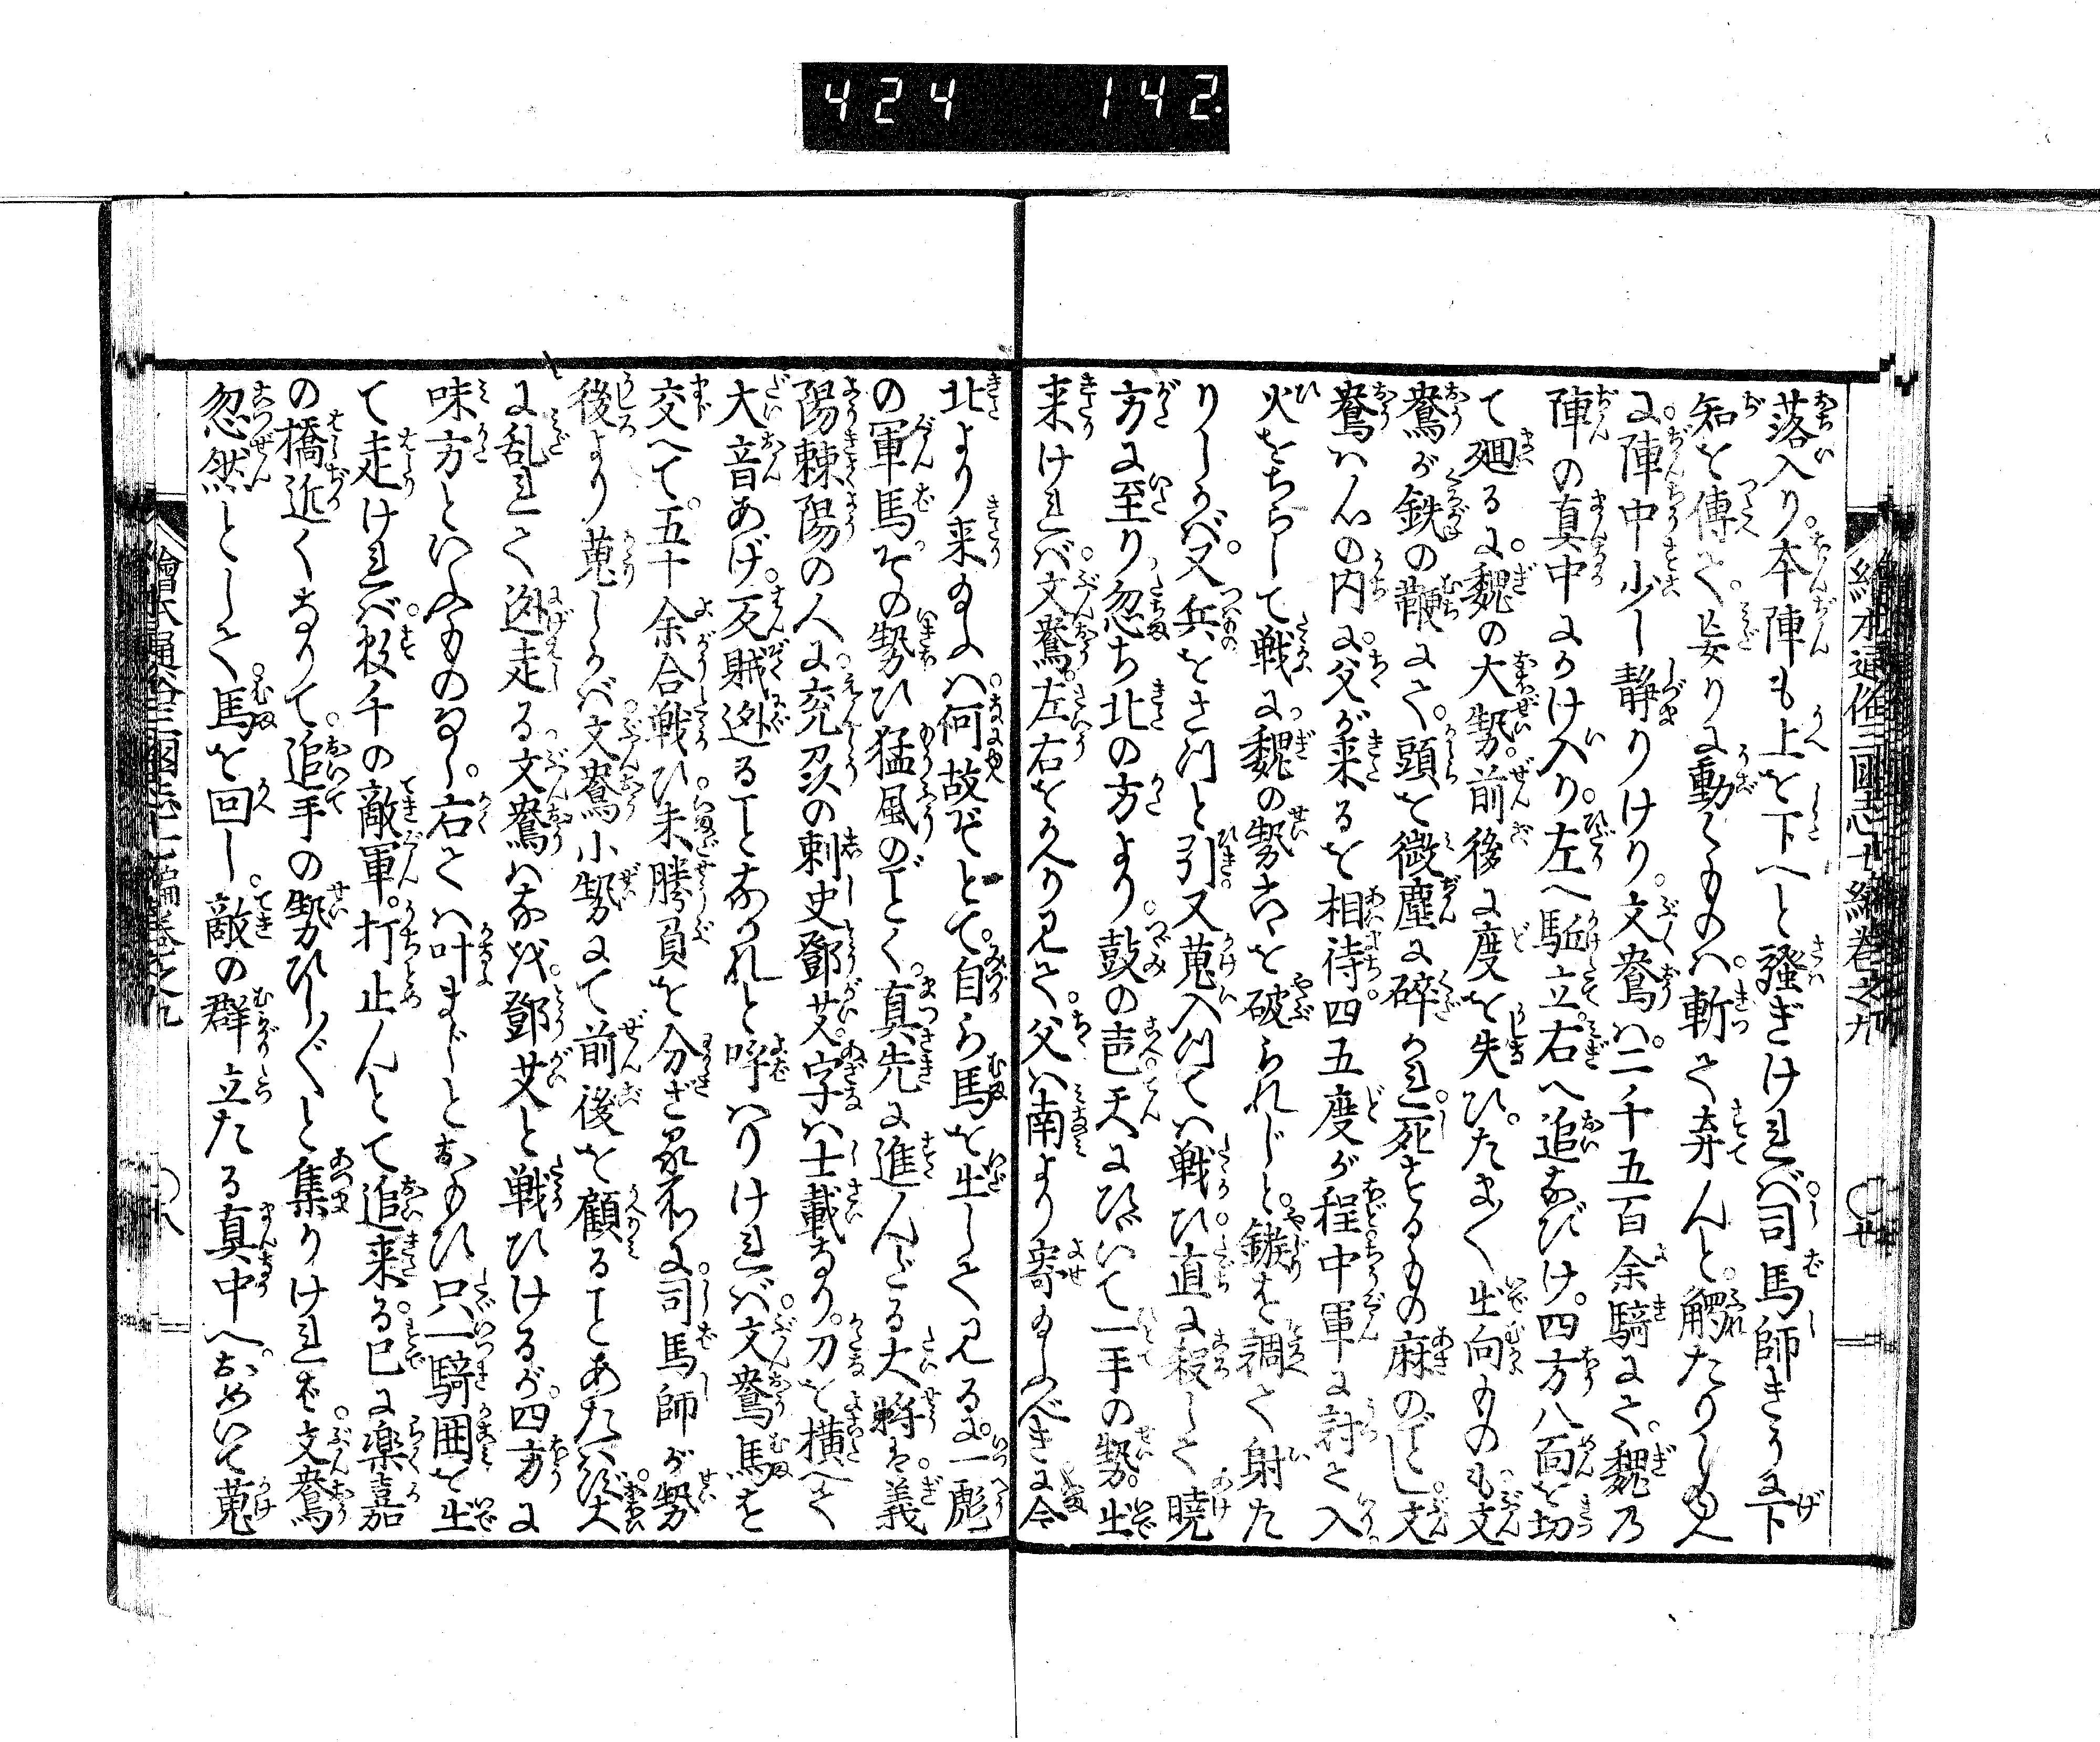 424 142
繪本通俗三國志七編巻之九
落入り。本陣も上を下へと騒ぎけれバ。司馬師きうに下
知を傳て。妄りに動くものハ。斬て弃んと。觸たりしゆへ
に。陣中少し静りけり。文鴦ハ。二千五百余騎にて。魏乃
陣の真中にかけ入り。左へ駈立。右へ追なびけ。四方八面を切
て廻るに。魏の大勢。前後に度を失ひ。たま〱出向ものも文
鴦が鉄の鞭にて。頭を微塵に碎かれ。死するもの麻のごとし。文
鴦ハ心の内に。父が来るを相待。四五度が程中軍に討て入
火をちらして戦に。魏の勢ハを破られじと。鏃を調て射た
りしかバ。又兵をさつと引。又蒐入ってハ戦ひ。直に殺して暁
方に至り。忽ち北の方より。鼓の声天にひゞいて一手の勢。出
来けれバ。文鴦。左右をかへり見て。父ハ南より寄給ふべきに今
北より来給ふハ。何故ぞとて。自ら馬を出して見るに。一彪
の軍馬。その勢ひ猛風のごとく。真先に進んどる大将は。義
陽棘陽の人に。兗州の刺史鄧艾。字ハ士載なり。刀を横へて
大音あげ。反賊迯ることなかれと呼ハりけれバ。文鴦馬を
交へて。五十余合戦ひ。未勝負を分ざる所に。司馬師が勢
後より蒐しかバ。文鴦小勢にて前後を顧ることあたハず。大
に乱れて迯走る。文鴦ハなを。鄧艾と戦ひけるが。四方に
味方といふものなし。右てハ叶まじとおもひ。只一騎囲を出
て走けれバ。数千の敵軍。打止んとて追来る。已に楽嘉
の橋近くなりて。追手の勢ひし〱と集りけれども。文鴦
忽然として。馬を回し。敵の群立たる真中へ。おめいて蒐
繪本通俗三國志七編巻之九